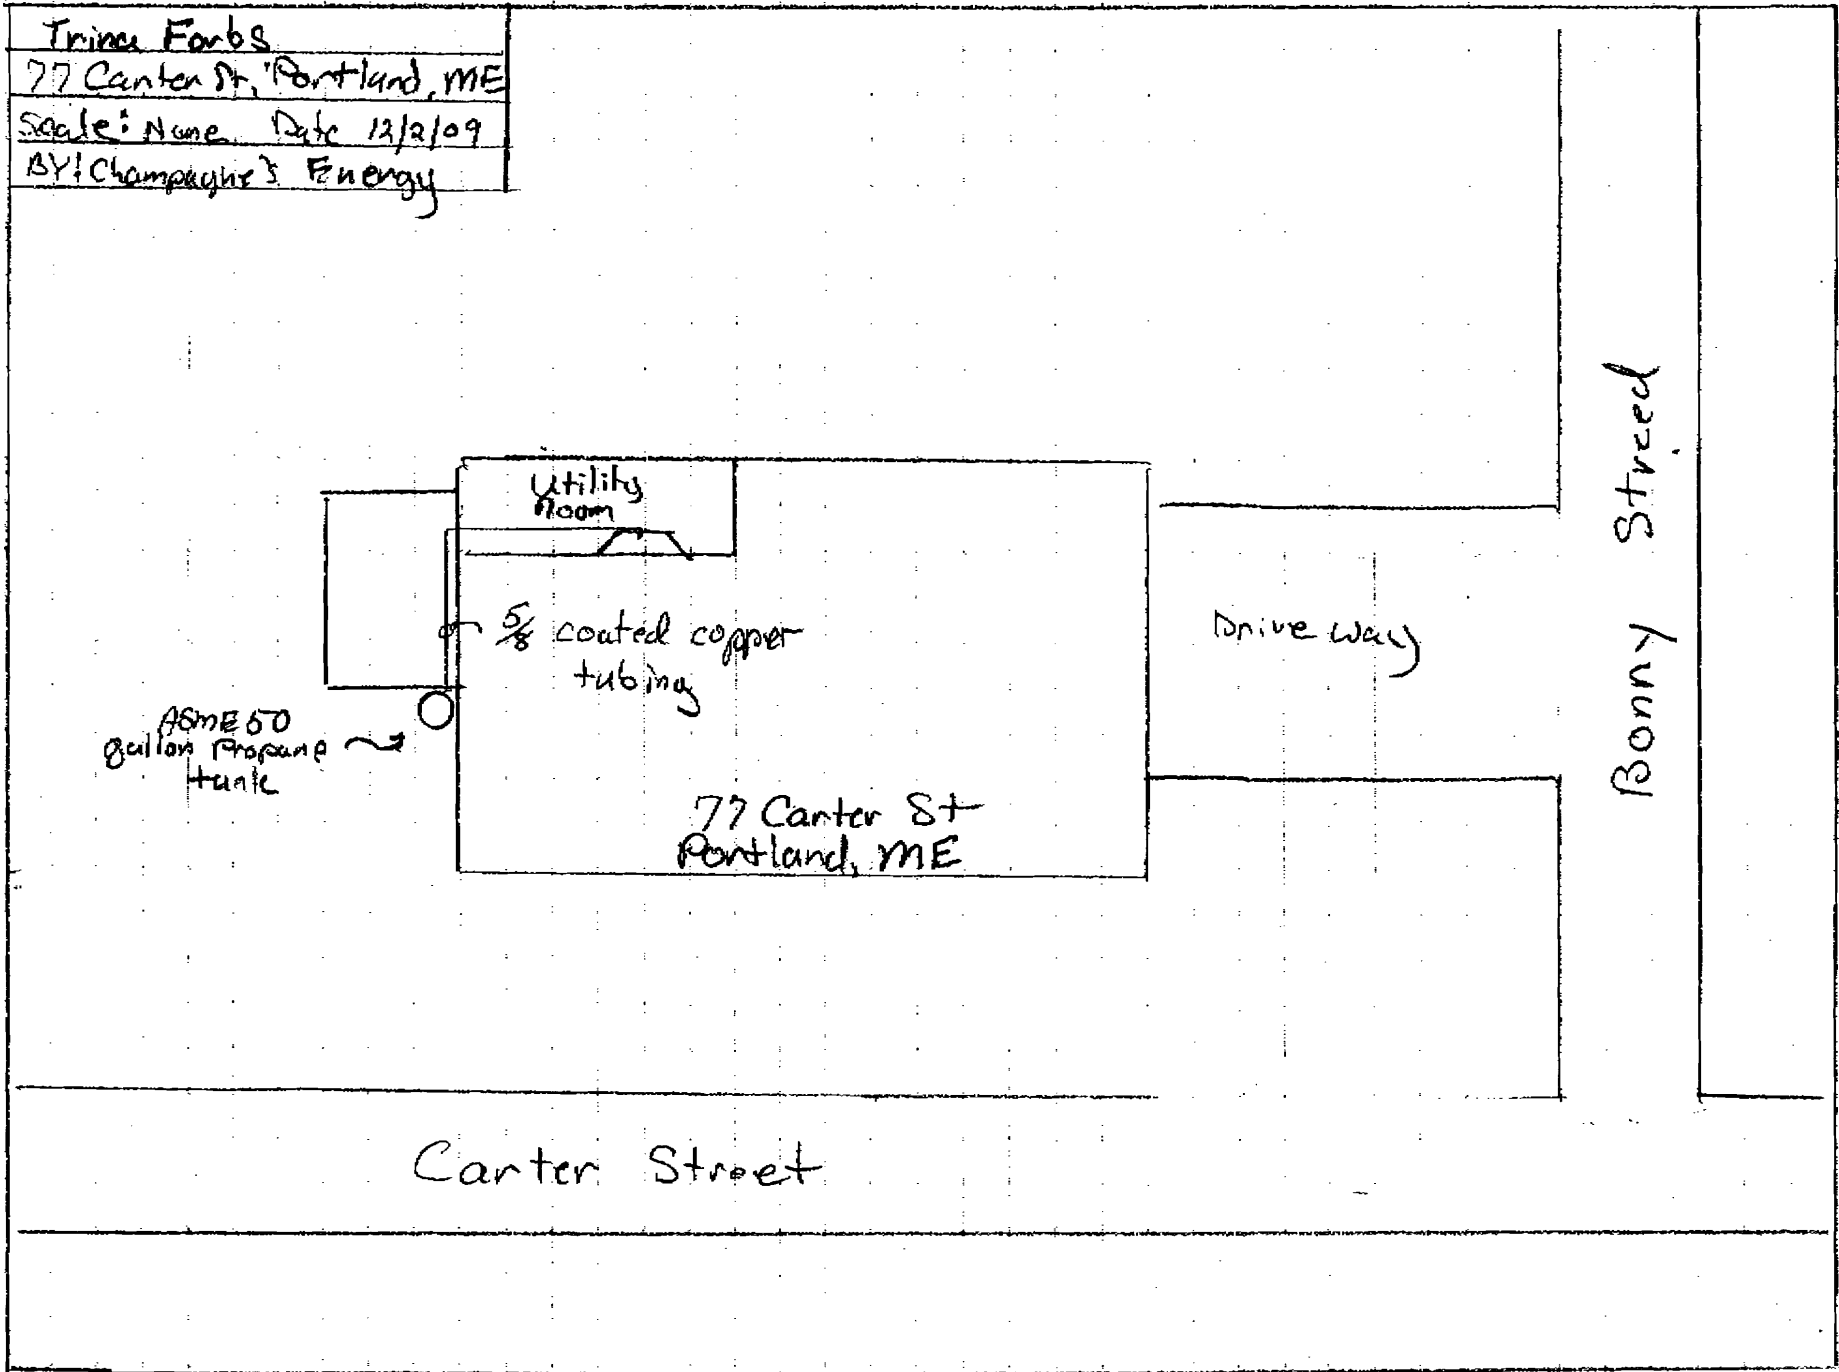 Trina Forbs
77 Carter St, Portland, ME
Scale: None Date 12/2/09
BY: Champagne's Energy
Utility
Room
5/8 coated copper
tubing
ASME 50
gallon Propane
tank
Drive way
77 Carter St
Portland, ME
Bonny Street
Carter Street